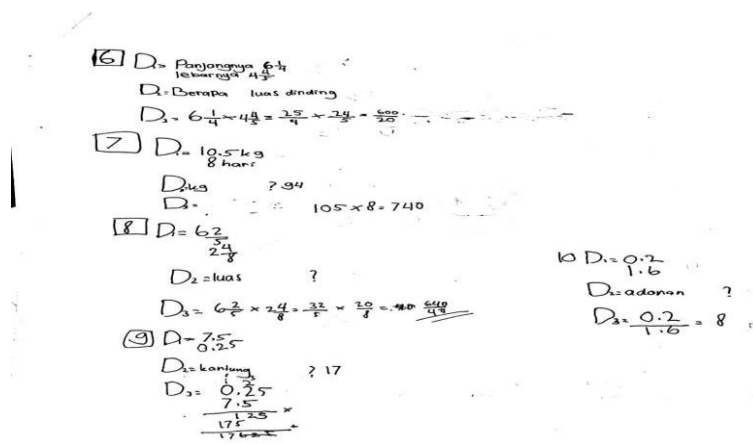 6 D₁= Panjangnya 6 1/4
lebarnya 4 4/5
D₂=Berapa luas dinding
D₃= 6 1/4 × 4 4/5 = 25/4 × 24/5 = 600/20
7 D₁= 10.5 kg
8 hari
D₂ kg ? 94
D₃= 105 × 8 = 740
8 D₁= 6 2/5
2 4/8
D₂ = luas ?
D₃= 6 2/5 × 2 4/8 = 32/5 × 20/8 = 640/40
9 D₁= 7.5
0.25
D₂= kantung ? 17
D₃= 0.25
7.5
125 ×
175
17625 +
10 D₁= 0.2
1.6
D₂= adonan ?
D₃= 0.2/1.6 = 8